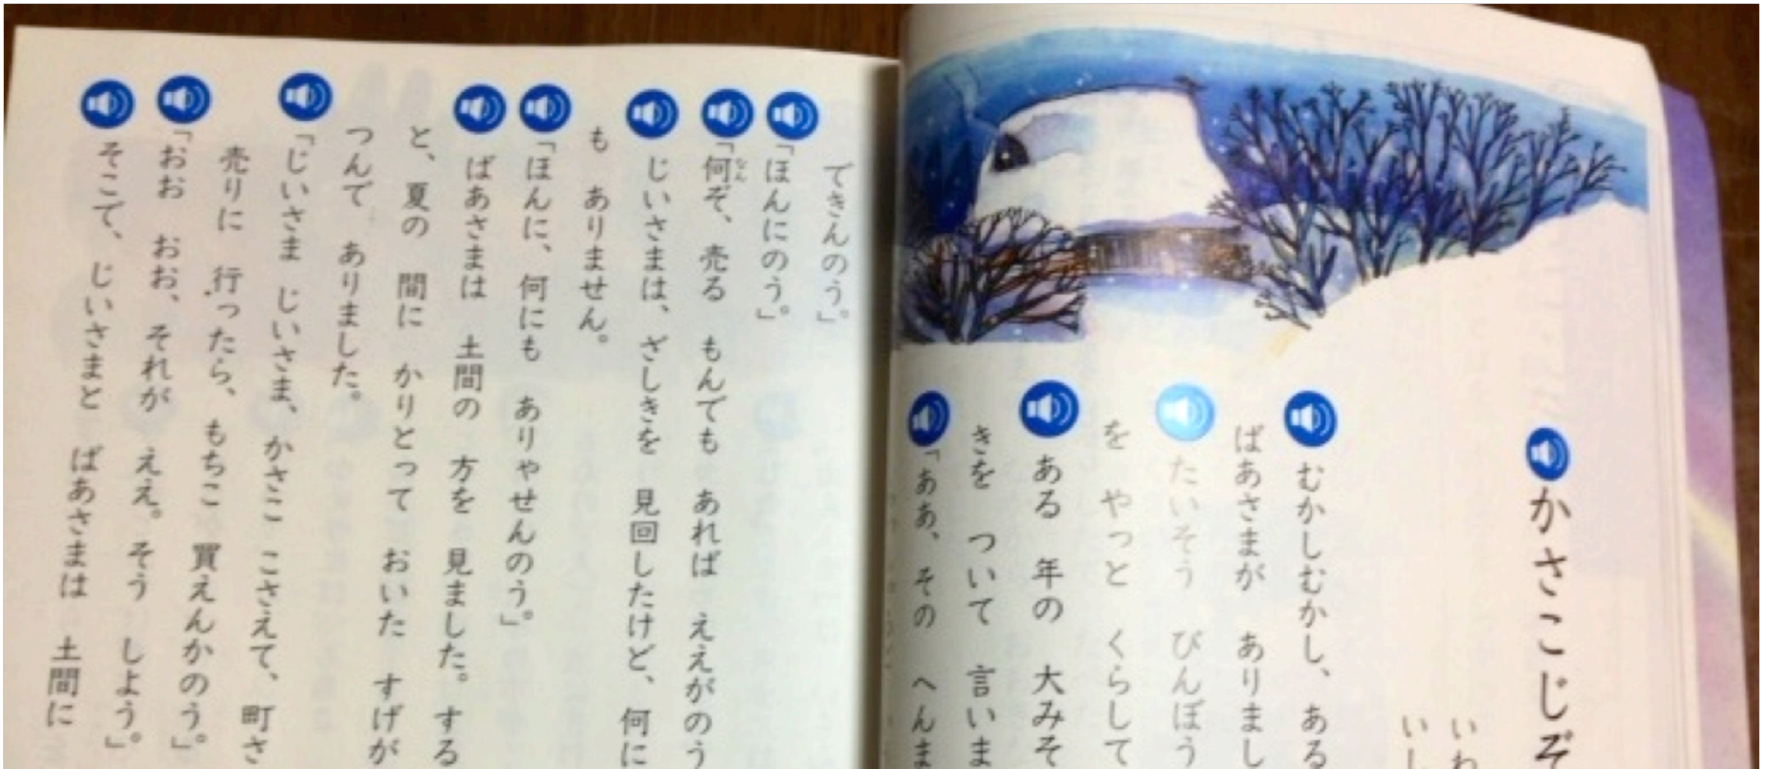 かさこじぞ
いわ
いし
むかしむかし、ある
ばあさまが ありまし
たいそう びんぼう
を やっと くらして
ある 年の 大みそ
きを ついて 言いま
「ああ、その へんま
できんのう。」
「ほんにのう。」
「何ぞ、売る もんでも あれば ええがのう
なん
じいさまは、ざしきを 見回したけど、何に
も ありません。
「ほんに、何にも ありゃせんのう。」
ばあさまは 土間の 方を 見ました。する
と、夏の 間に かりとって おいた すげが
つんで ありました。
「じいさま じいさま、かさこ こさえて、町さ
売りに 行ったら、もちこ 買えんかのう。」
「おお おお、それが ええ。そう しよう。」
そこで、じいさまと ばあさまは 土間に